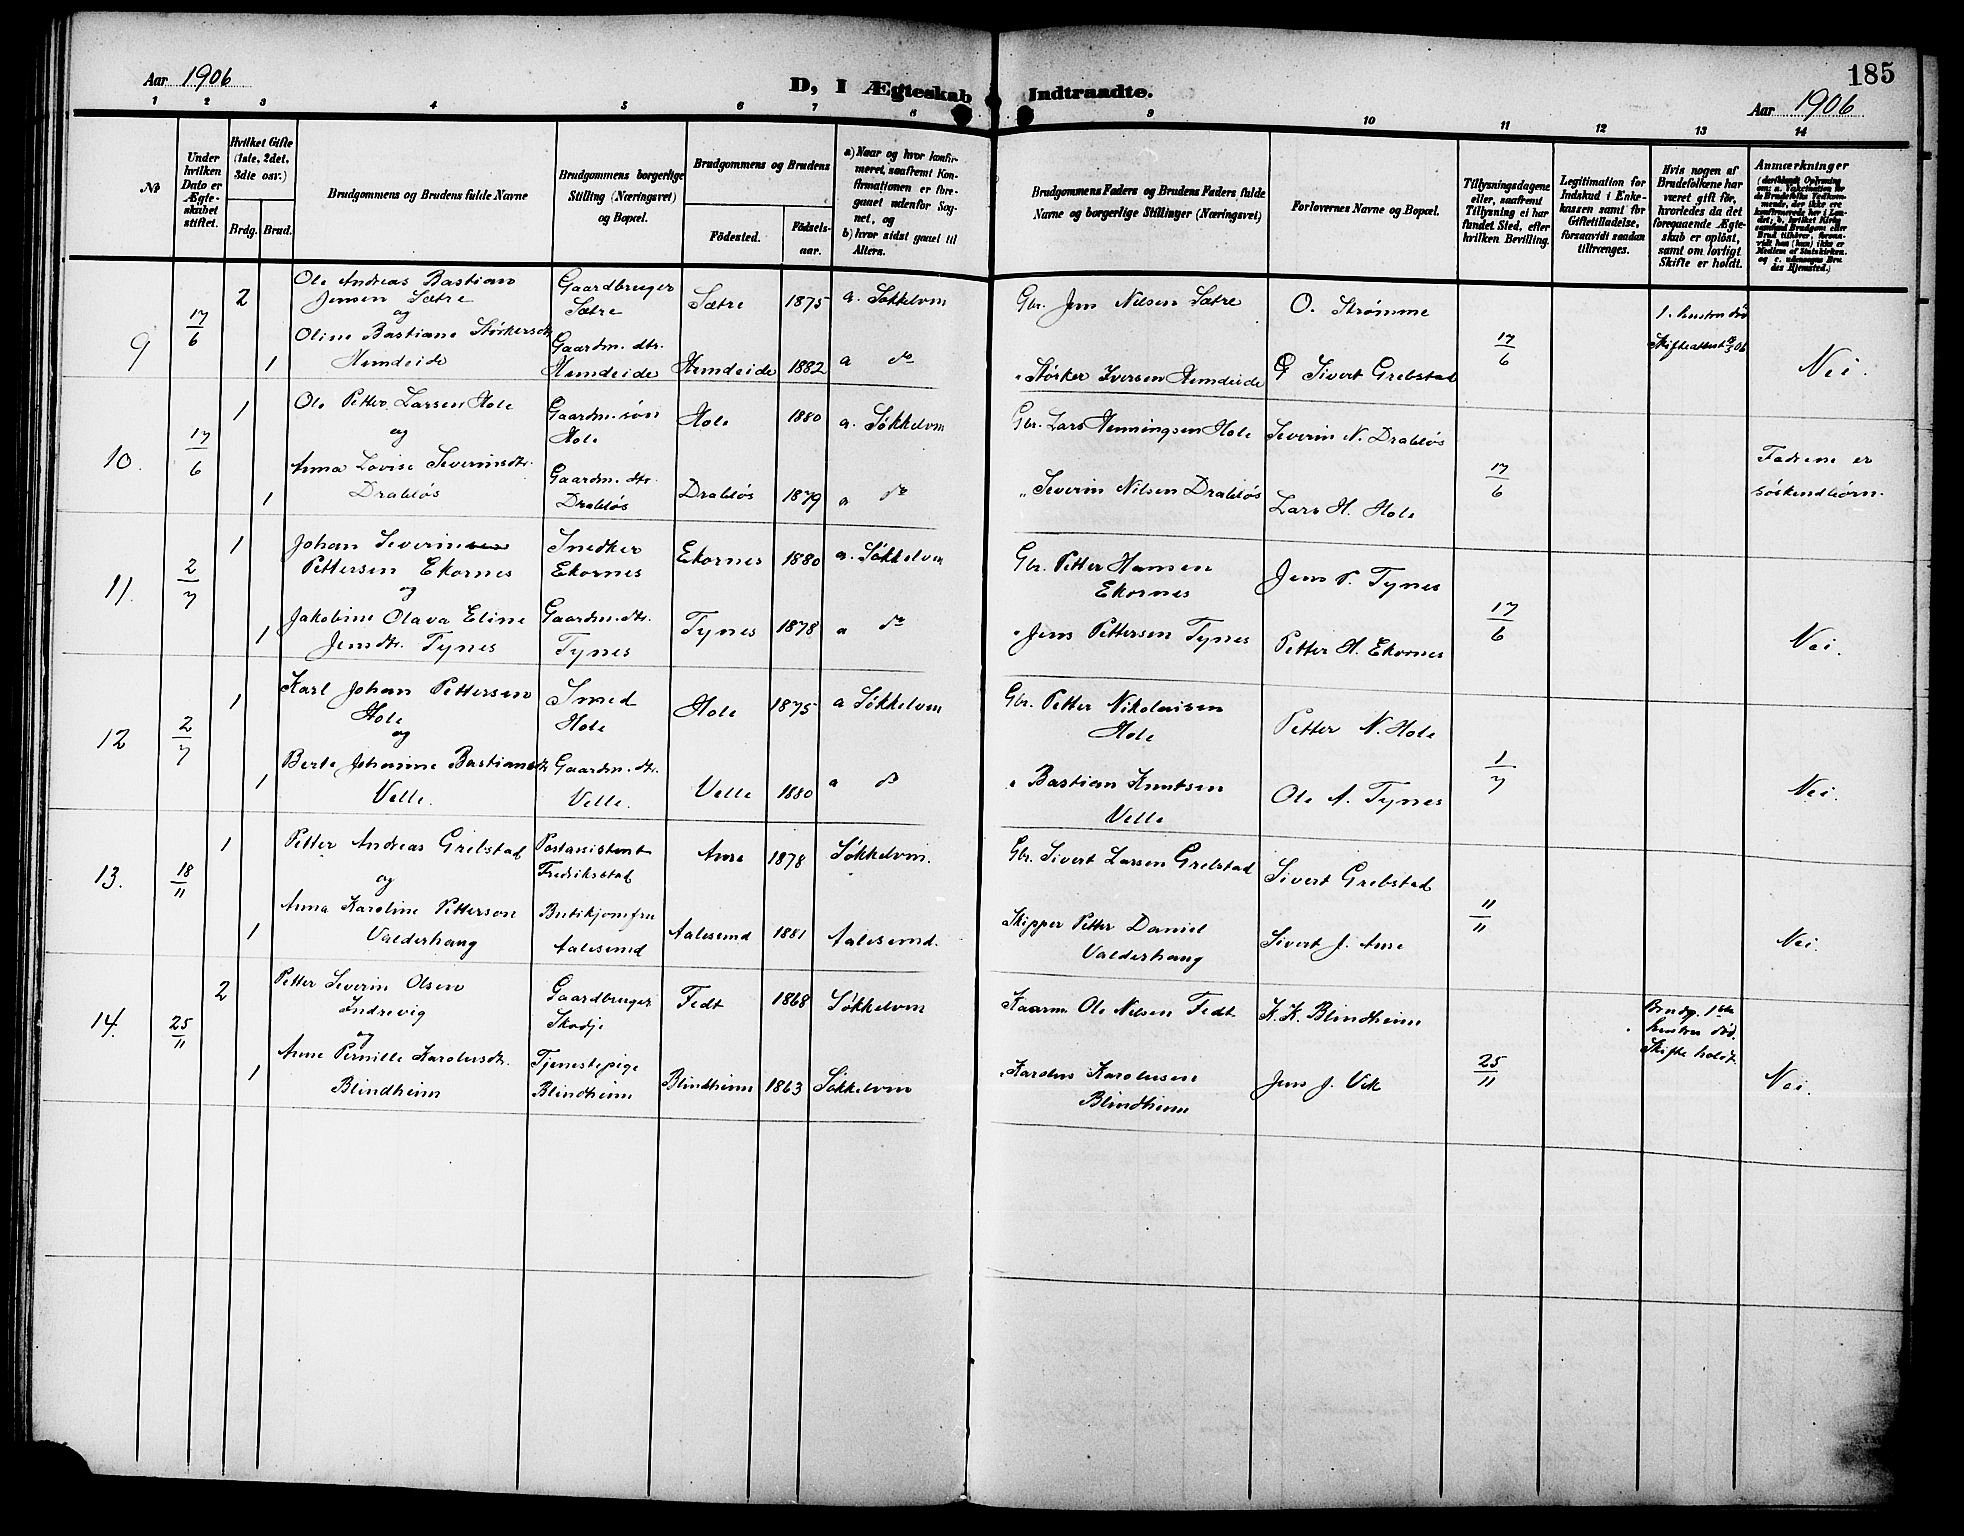 Aar 1906
D, I Ægteskab Indtraadte.
185
Aar 1906
1 2 3 4 5 6 7 8 9 10 11 12 13 14
№
Under
hvilken
Dato er
Ægte-
skabet
stiftet.
Hvilket Gifte
(1ste, 2det,
3die osv.)
Brdg. Brud.
Brudgommens og Brudens fulde Navne
Brudgommens borgerlige
Stilling (Næringsvei)
og Bopæl.
Brudgommens og Brudens
Födested.
Födsels-
aar.
a) Naar og hvor konfir-
meret, saafremt Kon-
firmationen er fore-
gaaet udenfor Sog-
net, og
b) hvor sidst gaaet til
Alters.
Brudgommens Faders og Brudens Faders fulde
Navne og borgerlige Stillinger (Næringsvei)
Forlovernes Navne og Bopæl.
Tillysningsdagene
eller, saafremt
Tillysning ei har
fundet Sted, efter
hvilken Bevilling.
Legitimation for
Indskud i Enke-
kassen samt for
Giftetilladelse,
forsaavidt saadan
tiltrænges.
Hvis nogen af
Brudefolkene har
været gift för,
hvorledes da det
foregaaende Ægte-
skab er oplöst,
samt om lovligt
Skifte er holdt.
Anmærkninger
9
17/6
2
Ole Andreas Bastian
Jensen Sætre
og
Gaardbruger
Sætre
Sætre
1875
a. Søkkelven
Gbr. Jens Nilsen Sætre
O. Strømme
17/6
1. hustru død
Skifteattest
1
Oline Bastiane Størkersdtr
Hemdeide
Gaardm. dtr.
Hemdeide
Hemdeide
1882
a do
" Størker Iversen Hemdeide
Sivert Grebstad
Nei.
10.
17/6
1
Ole Petter Larsen Hole
og
Gaardm. søn
Hole
Hole
1880
a. Søkkelven
Gbr. Lars Henningsen Hole
Severin N. Drabløs
17/6
Fædrene er
søskendbørn.
1
Anna Lovise Severinsdtr.
Drabløs
Gaardm. dtr.
Drabløs
Drabløs
1879
a do
" Severin Nilsen Drabløs
Lars H. Hole
11.
2/7
1
Johan Severin
Pettersen Ekornes
og
Snedker
Ekornes
Ekornes
1880
a. Søkkelven
Gbr. Petter Hansen
Ekornes
Jens P. Tynes
17/6
1
Jakobine Olava Eline
Jensdtr. Tynes
Gaardm. dtr.
Tynes
Tynes
1878
a do
" Jens Pettersen Tynes
Petter H. Ekornes
Nei.
12
2/7
1
Karl Johan Pettersen
Hole
og
Smed
Hole
Hole
1875
a Søkkelven
Gbr. Petter Nikolaisen
Hole
Petter N. Hole
1/7
1
Berte Johanne Bastiansdtr
Velle.
Gaardm. dtr.
Velle.
Velle
1880
a do
" Bastian Knutsen
Velle
Ole A. Tynes
Nei.
13.
18/11
1
Petter Andreas Grebstad
og
Postassistent
Fredriksstad
Aure
1878
Søkkelven.
Gbr. Sivert Larsen Grebstad
Sivert Grebstad
11/11
1
Anna Karoline Petterson
Valderhaug
Butikjomfru
Aalesund
Aalesund
1881
Aalesund.
Skipper Petter Daniel
Valderhaug
Sivert J. Aure
Nei.
14.
25/11
2
Petter Severin Olsen
Indrevig
og
Gaardbruger
Skodje
Fedt
1868
Søkkelven
Kaarm Ole Nilsen Fedt
K. K. Blindheim
25/11
Brudg. 1ste
hustru død.
Skifte holdt.
1
Anne Pernille Karolusdtr.
Blindheim
Tjenestepige
Blindheim
Blindheim
1863
Søkkelven
" Karolus Karolusen
Blindheim
Jens J. Vik
Nei.